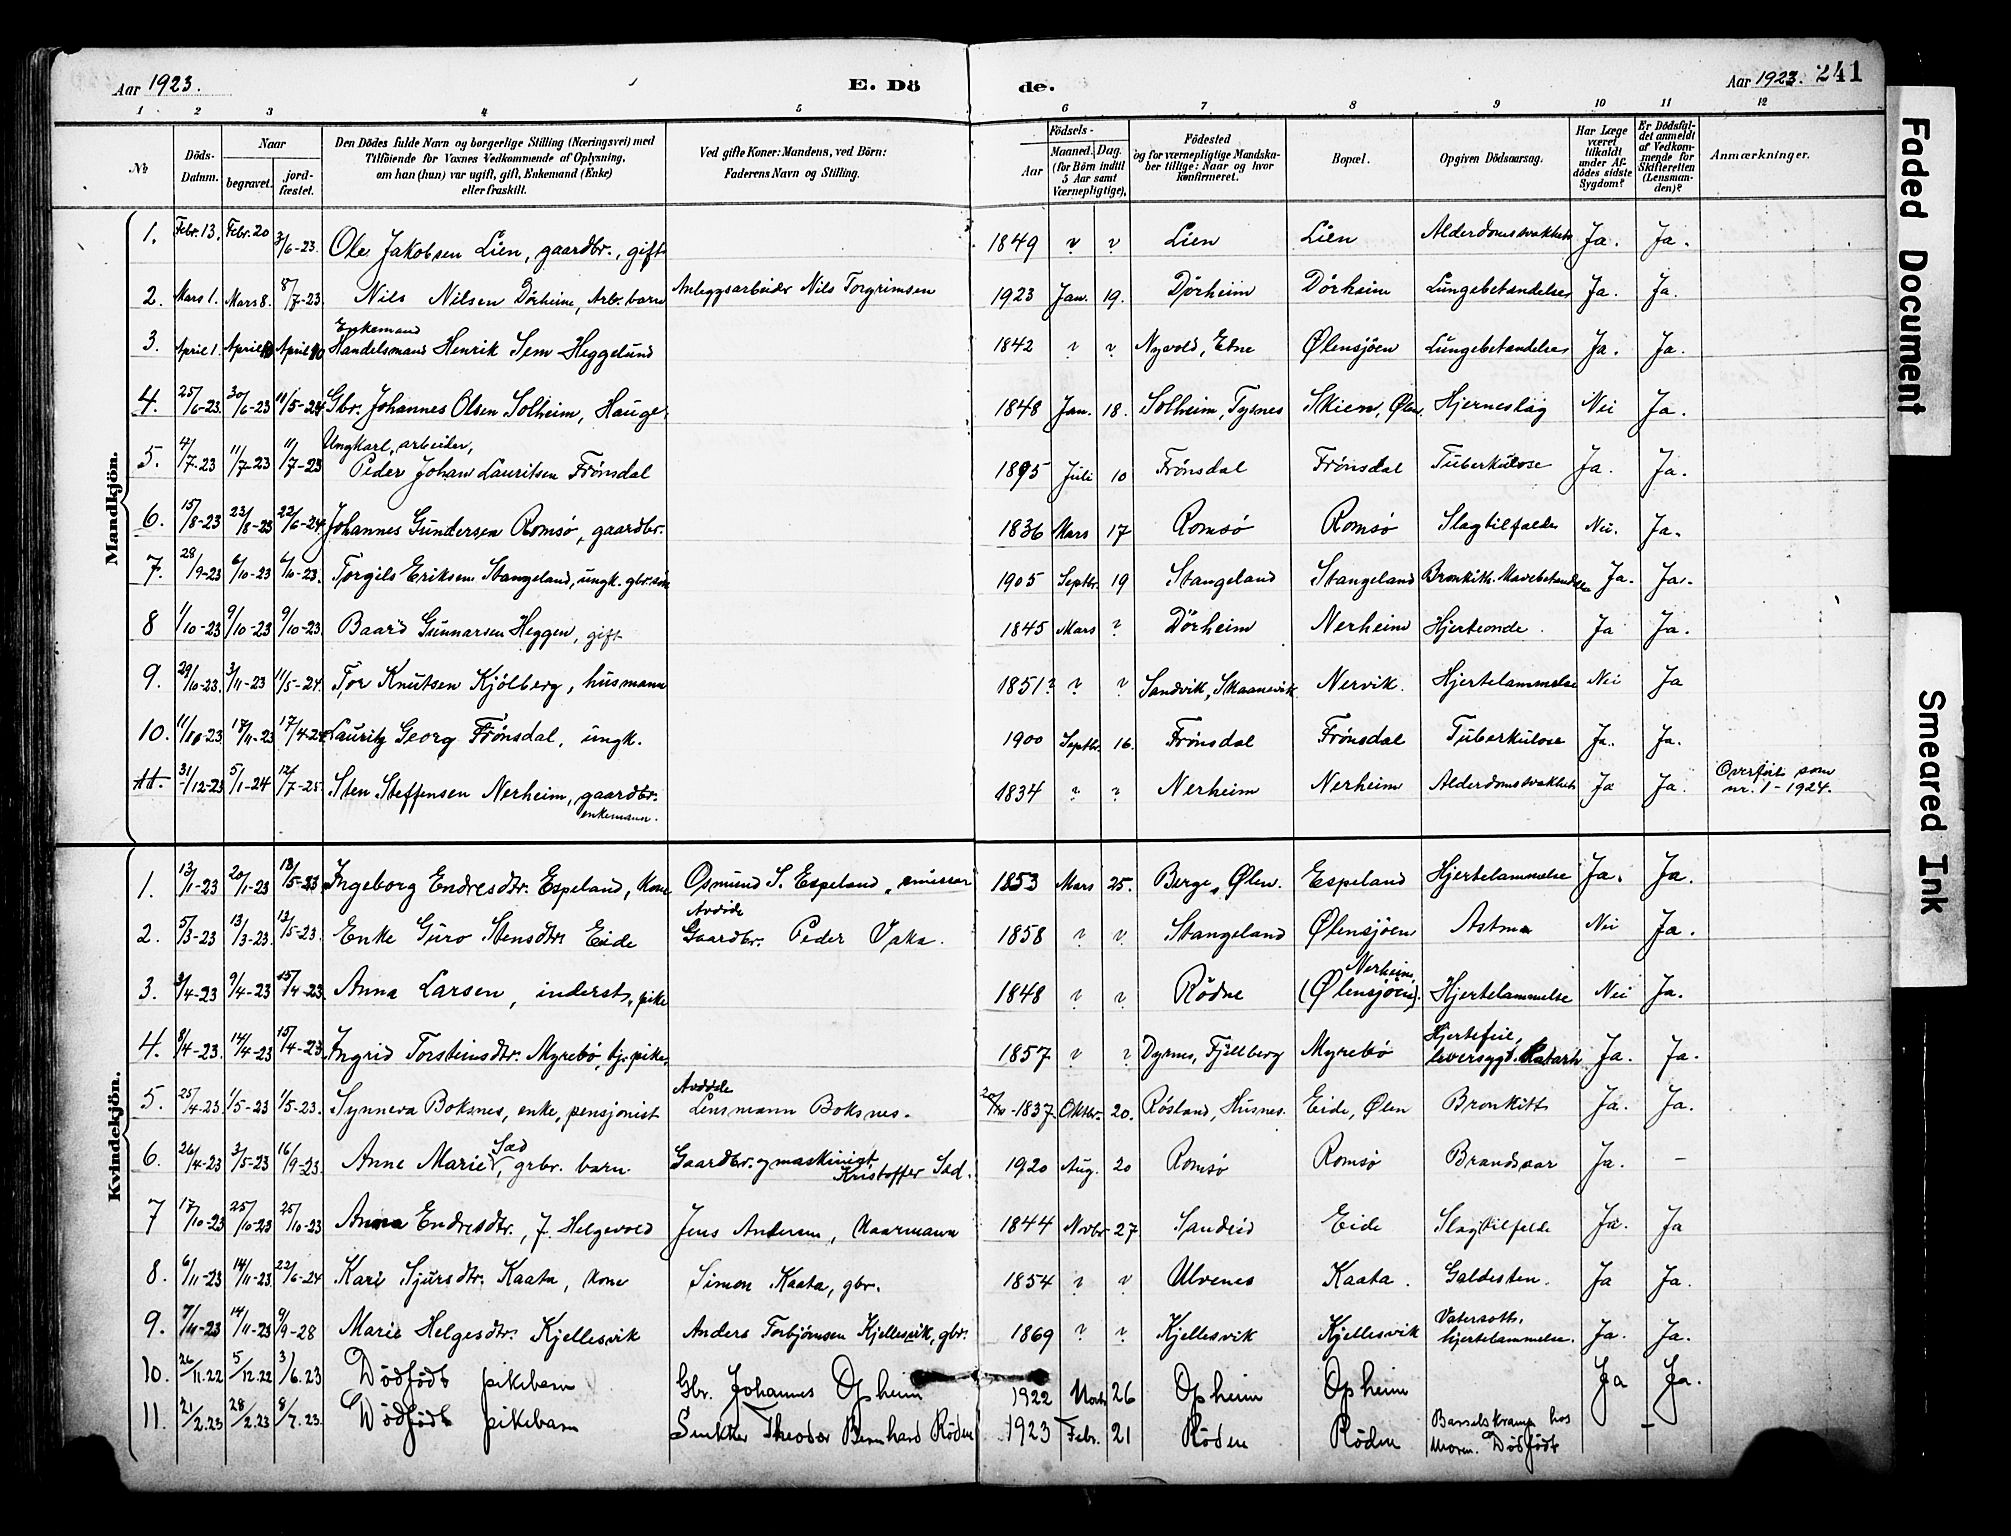 Aar 1923. E. Dö de. Aar 1923. 241
1 2 3 4 5 6 7 8 9 10 11 12
№ Döds-Datum. Naar begravet. jordfæstet. Den Dödes fulde Navn og borgerlige Stilling (Næringsvei) med Tilföiende for Voxnes Vedkommende af Oplysning, om han (hun) var ugift, gift, Enkemand (Enke) eller fraskilt. Ved gifte Koner: Mandens, ved Börn: Faderens Navn og Stilling. Födsels- Aar Maaned. Dag. (for Börn indtil 5 Aar samt Værnepligtige). Födested og for værnepligtige Mandskaber tillige: Naar og hvor konfirmeret. Bopæl. Opgiven Dödsaarsag. Har Læge været tilkaldt under Afdödes sidste Sygdom? Er Dödsfaldet anmeldt af Vedkommende for Skifteretten (Lensmanden)? Anmærkninger.
Mandkjön.
1. Febr. 13. Febr. 20 3/6-23. Ole Jakobsen Lien, gaardbr., gift 1849 ? ? Lien Lien Alderdomssvakhet Ja. Ja.
2. Mars 1. Mars 8. 8/7-23. Nils Nilsen Dörheim, Arb. barn Anleggsarbeider Nils Torgrimsen 1923 Jan. 19. Dörheim Dörheim Lungebetendelse Ja. Ja.
3. April 1. April 10 April 10 Enkemand Handelsmand Henrik Sem Heggelund 1842 ? ? Nyvold, Etne Ølensjøen Lungebetendelse Ja. Ja.
4. 25/6-23. 30/6-23 11/5-24 Gbr. Johannes Olsen Solheim, Hauge 1848 Jan. 18. Solheim, Tysnes Skien, Ølen. Hjerneslag Nei Ja.
5. 4/7-23 11/7-23 11/7-23 Ungkarl, arbeider, Peder Johan Lauritsen Frönsdal 1895 Juli 10 Frönsdal Frönsdal Tuberkulose Ja. Ja.
6. 15/8-23 23/8-23 22/6-24. Johannes Gundersen Romsø, gaardbr. 1836 Mars 17 Romsø Romsø Slagtilfælde Nei. Ja.
7. 28/9-23 6/10-23 6/10-23. Torgils Eriksen Stangeland, ungk. gbr.søn 1905 Septbr. 19 Stangeland Stangeland Bronkith. Mavebetendelse Ja. Ja.
8 1/10-23 9/10-23 9/10-23. Baard Gunnarsen Heggen, gift 1845 Mars ? Dörheim Nerheim Hjerteonde. Ja Ja.
9. 29/10-23. 3/11-23 11/5-24. Tor Knutsen Kjölberg, husmann 1851? ? ? Sandvik, Skaanevik Nervik. Hjertelammelse Nei Ja
10. 11/10-23 17/11-23 17/4-24 Lauritz Georg Frönsdal, ungk. 1900 Septbr. 16. Frönsdal Frönsdal Tuberkulose Ja. Ja.
11. 31/12-23 5/1-24 12/7-25. Sten Steffensen Nerheim, gaardbr. enkemann. 1834 ? ? Nerheim Nerheim Alderdomssvakhet Ja Ja. Overfört som nr. 1 - 1924.
Kvindekjön.
1. 13/1-23 20/1-23 13/5-23 Ingeborg Endresdtr. Espeland, kone Osmund S. Espeland, emissær 1853 Mars 25. Berge, Ølen. Espeland Hjertelammelse Ja. Ja.
2. 5/3-23 13/3-23. 13/5-23. Enke Guro Stensdtr. Eide Avdöde Gaardbr. Peder Vaka. 1858 ? ? Stangeland Ølensjøen Astma Nei Ja.
3. 3/4-23 9/4-23 15/4-23. Anna Larsen, inderst, pike 1848 ? ? Rödne Nerheim, (Ølensjøen). Hjertelammelse Nei Ja.
4. 8/4-23. 14/4-23 15/4-23. Ingrid Torsteinsdtr. Myrebö, tj.pike. 1857 ? ? Dyrnes, Fjellberg Myrebø Hjertefeil, leversygd. Katarh Ja. Ja.
5. 25/4-23. 1/5-23 1/5-23. Synneva Boksnes, enke, pensjonist Avdöde Lensmann Boksnes. 20/10-1837. Oktbr. 20. Røsland, Husnes. Eide, Ølen Bronkitt Ja. Ja.
6. 26/4-23 3/5-23 16/9-23. Anne Marie Sæd, grbr. barn Gaardbr. og maskinist Kristoffer Sæd. 1920 Aug. 20 Romsø Romsø Brandsaar Ja. -
7 17/10-23 25/10-23 25/10-23 Anna Endresdtr., f. Helgevold Jens Andersen, Vaarmann 1844 Novbr 27 Sandeid Eide Slagtilfelde Ja. Ja
8. 6/11-23 14/11-23 22/6-24 Kari Sjursdtr. Kaata, kone Simon Kaata, gbr. 1854 ? ? Ulvenes Kaata. Galdesten. Ja Ja.
9. 7/11-23 14/11-23 9/9-28 Marie Helgesdtr. Kjellesvik Anders Torbjörnsen Kjellesvik, gbr. 1869 ? ? Kjellesvik Kjellesvik Vatersott, hjertelammelse. Ja. Ja.
10. 26/11.22 5/12.22 3/6.23 Dödfödt pikebarn Gbr. Johannes Opheim 1922 Novb 26 Opheim Opheim Ja Ja.
11. 21/2.23 28/2.23 8/7.23. Dödfödt pikebarn Snekker Theodor Bernhard Röden 1923 Febr. 21 Röden Röden Barselskramp hos moren. Dödfödt -
Faded Document
Smeared Ink